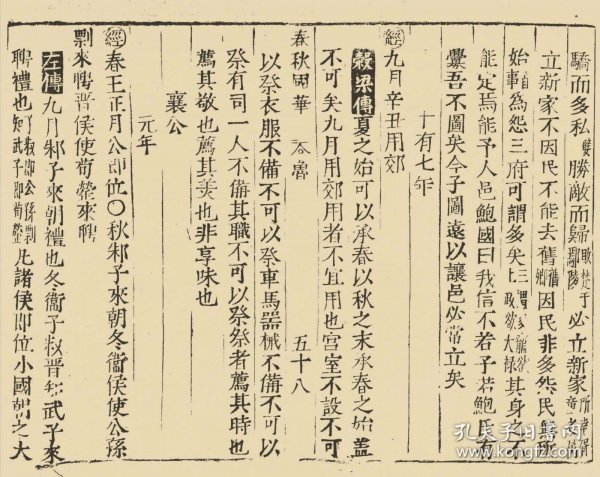 驕而多私勝敵而歸敗楚于鄢陵必立新家
立新家不因民不能去舊舊卿因民非多怨民無所
始為怨三府可謂多矣其身之不
能定焉能予人邑鮑國曰我信不若子若鮑氏有
釁吾不圖矣今子圖遠以讓邑必常立矣
十有七年
經九月辛丑用郊
穀梁傳夏之始可以承春以秋之末承春之始蓋
不可矣九月用郊用者不宜用也宮室不設不可
春秋國華 魯 五十八
以祭衣服不備不可以祭車馬器械不備不可以
祭有司一人不備其職不可以祭祭者薦其時也
薦其敬也薦其美也非享味也
襄公
元年
經春王正月公即位〇秋邾子來朝冬衞侯使公孫
剽來聘晉侯使荀罃來聘
左傳九月邾子來朝禮也冬衞子叔晉知武子來
聘禮也子叔即公孫剽知武子即荀罃凡諸侯即位小國朝之大
孔夫子旧书网
www.kongfz.com